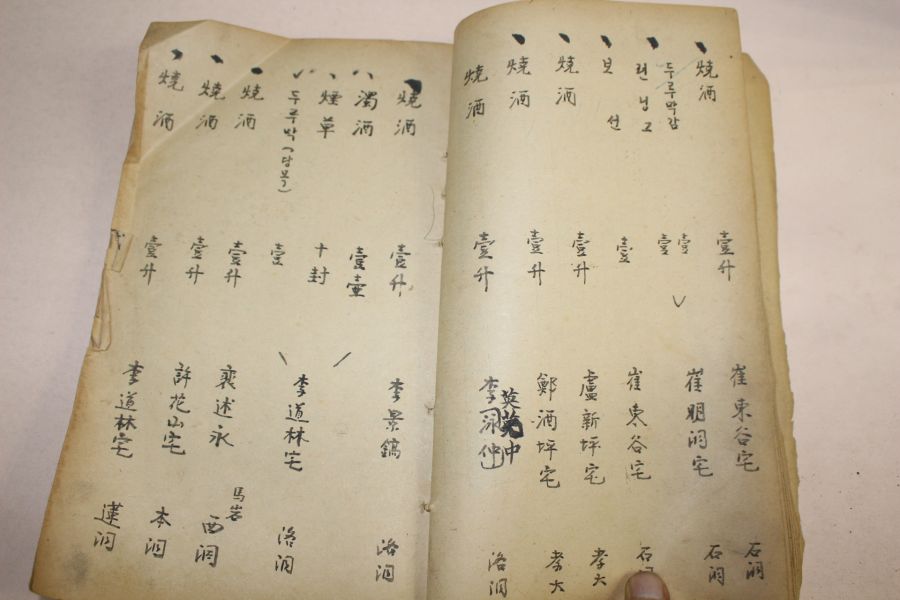 燒酒 壹升 崔東谷宅 石洞
두루막감 壹
런닝고 壹 崔明洞宅 石洞
보선 壹 崔東谷宅 石洞
燒酒 壹升 盧新坪宅 孝大
燒酒 壹升 鄭酒坪宅 孝大
燒酒 壹升 李泳仲 英中 洛洞
燒酒 壹升 李景鎬 洛洞
濁酒 壹壷
煙草 十封
두루막(당목) 壹 李道林宅 洛洞
燒酒 壹升 裵述永 馬岩 西洞
燒酒 壹升 許花山宅 本洞
燒酒 壹升 李道林宅 蓮洞